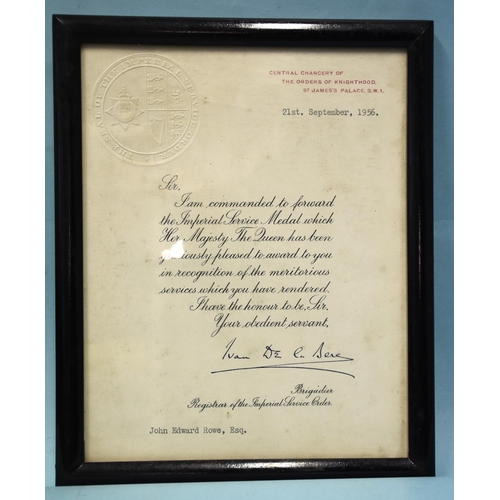 CENTRAL CHANCERY OF
THE ORDERS OF KNIGHTHOOD,
ST JAMES'S PALACE, S.W.1.
21st. September, 1956.
Sir,
I am commanded to forward
the Imperial Service Medal which
Her Majesty The Queen has been
graciously pleased to award to you
in recognition of the meritorious
services which you have rendered.
I have the honour to be, Sir,
Your obedient servant,
Ivan De la Bere
Brigadier
Registrar of the Imperial Service Order.
John Edward Rowe, Esq.